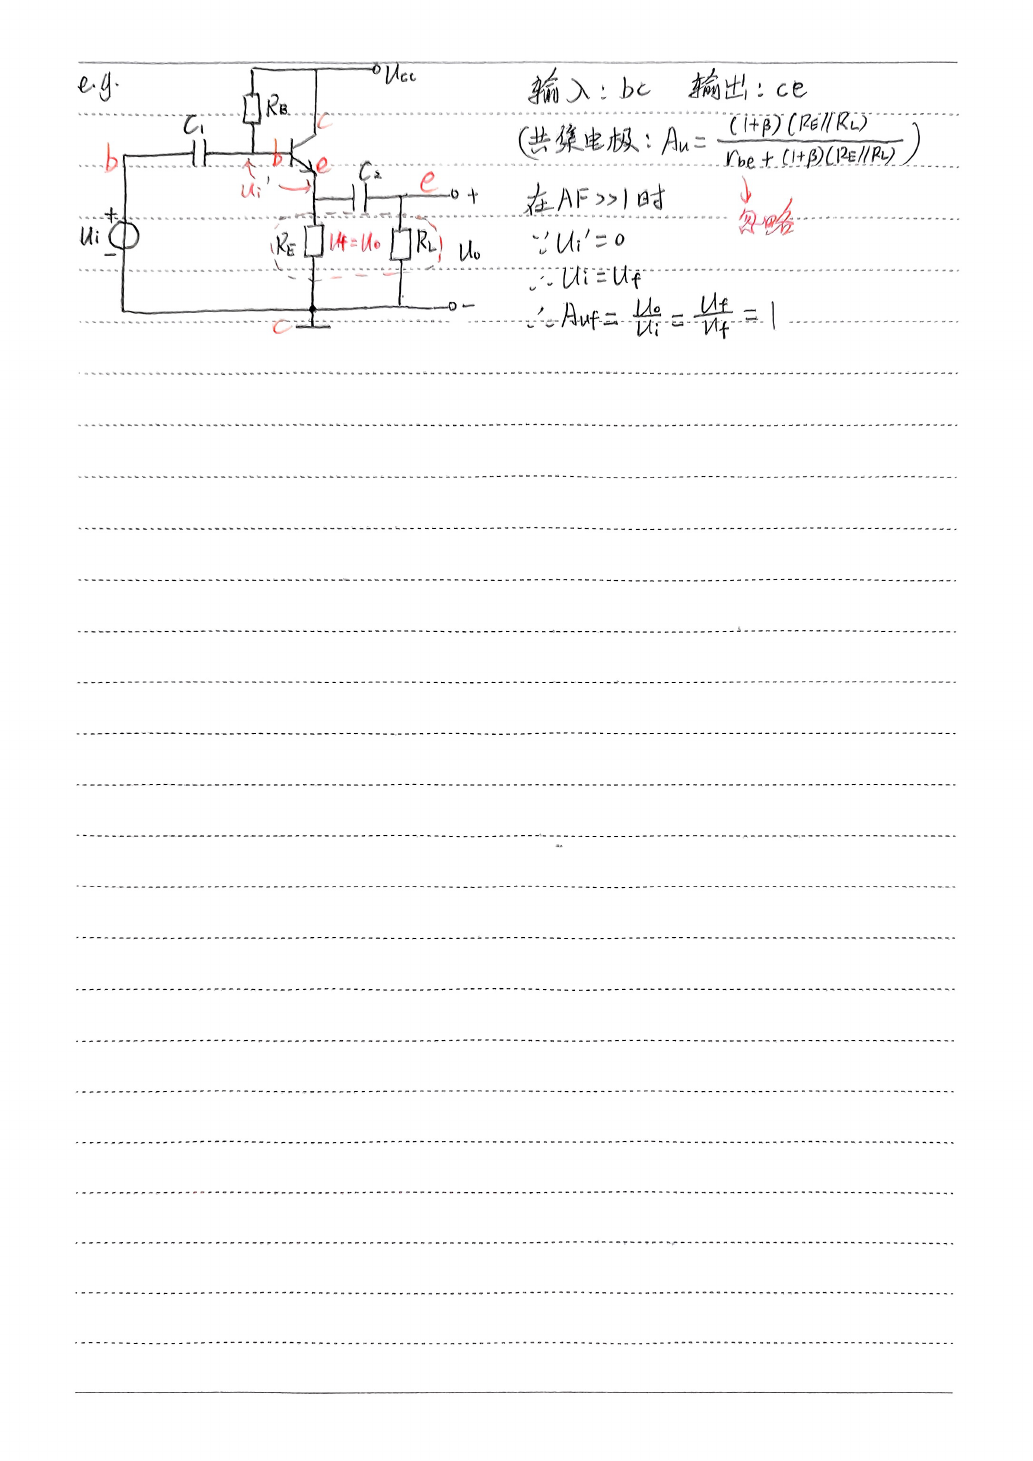 e.g.
UCC
RB
C1
b
b
c
e
Ui'
C2
e
+
+
Ui
-
RE
Uf=Uo
RL
Uo
-
c
输入: bc 输出: ce
(共集电极: Au = (1+β)(RE//RL) / rbe + (1+β)(RE//RL))
↓
忽略
在 AF>>1 时
∵ Ui'=0
∴ Ui=Uf
∴ Auf = Uo/Ui = Uf/Uf = 1